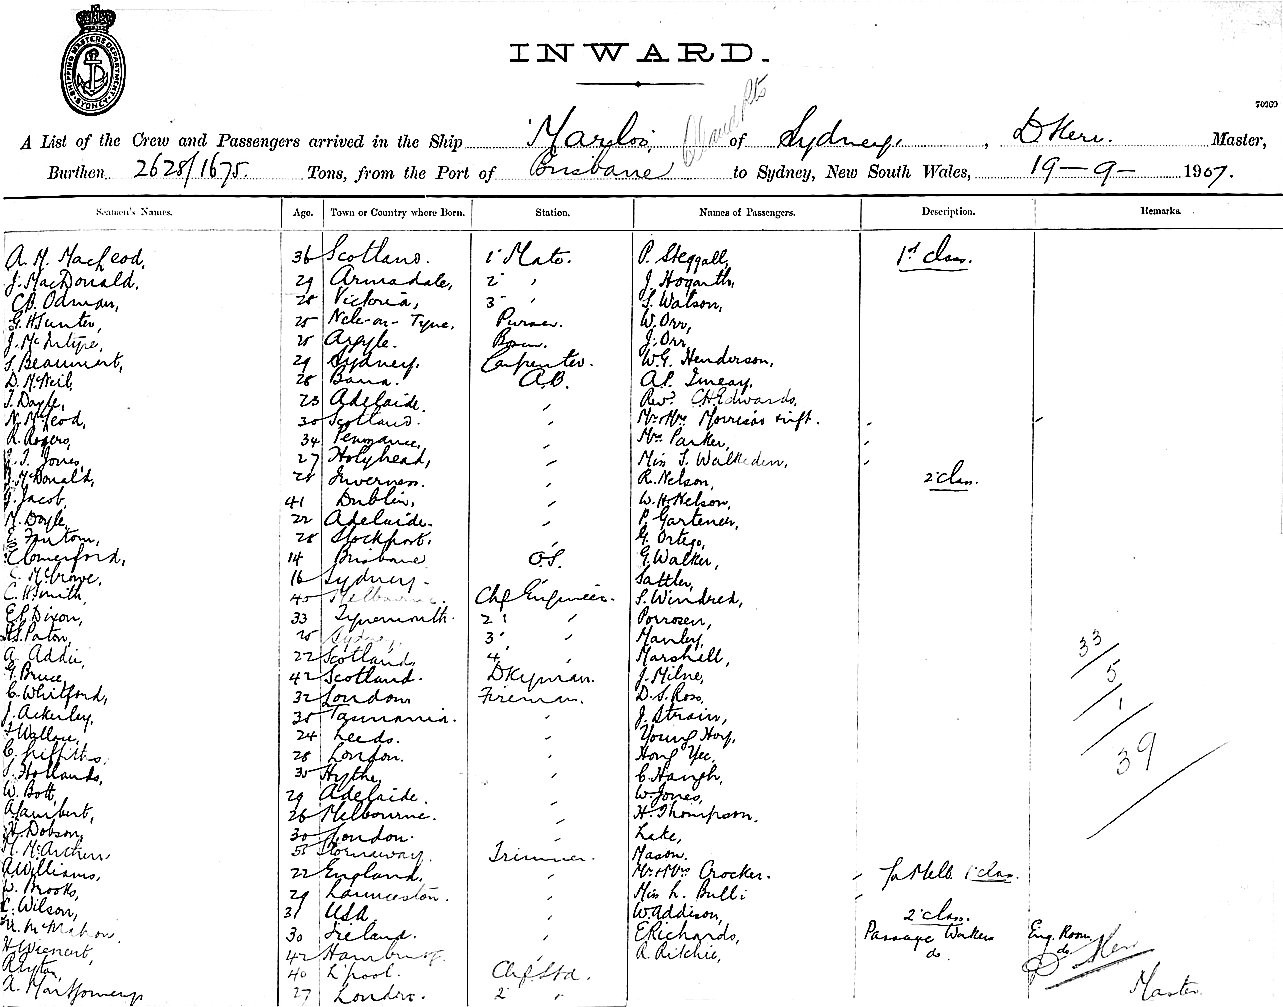 SHIPPING MASTERS DEPARTMENT SYDNEY
INWARD.
70969
A List of the Crew and Passengers arrived in the Ship of Sydney, D Kerr. Master,
Burthen 2628/1675. Tons, from the Port of Brisbane to Sydney, New South Wales, 19-9- 1907.
Seamen's Names. Age. Town or Country where Born. Station. Names of Passengers. Description. Remarks.
A. M. MacLeod, 36 Scotland. 1 Mate. P. Steggall, 1st class.
J. MacDonald, 29 Armadale, 2 " J. Hogarth,
CB. Odman, 28 Victoria, 3 " S. Watson,
G. Hunter, 25 Ncle-on-Tyne, Purser. W. Orr,
J. McIntyre, 25 Argyle. J. Orr,
S. Beaumont, 29 Sydney. Carpenter. W.G. Henderson,
D. McNeil, 28 Barra. A.B.
T. Doyle, 23 Adelaide. " Revd. C.H. Edwards,
N. McLeod, 30 Scotland. " Mr & Mrs Morrison
R. Rogers, 34 Penzance, " Mrs Parker,
Jones, 27 Holyhead, " Miss
McDonald, 28 Inverness. " R. Nelson, 2 class.
Jacob, 41 Dublin, " W. H. Nelson,
M. Doyle, 22 Adelaide. " P. Gartener,
28 Stockport. " G. Ortego,
Comerford, 14 Brisbane O.S. G. Walker,
16 Sydney - Sattler,
C. H. Smith, 45 Melbourne. Chf Engineer. S. Windred,
Dixon, 33 Tynemouth. 2 "
Paton, 25 Sydney, 3 " Manley, 33
A. Addie, 22 Scotland, 4 " Marshall,
G. Bruce, 42 Scotland. DKyman. J. Milne, 5
C. Whitford, 32 London Fireman. D. S. Ross, 1
J. Ackerley, 35 Tasmania. " J. Strain,
Wallace, 24 Leeds. " Young Hoy,
C. Griffiths, 28 London. " Hong Yee, 39
S. Hollands, 35 Hythe, " C. Haugh,
W. Bott, 29 Adelaide. " W Jones,
Lambert, 26 Melbourne. " H. Thompson.
H. Dobson, 30 London. " Lake,
55 Stornaway. Trimmer. Mason.
Williams, 22 England, " Mr & Mrs Crocker. for Melb 1 class.
Brooks, 29 Launceston. " Miss L. Bulli
C. Wilson, 31 USA. " W Addison, 2 class.
McMahon, 30 Ireland. " E Richards, Passage Workers Eng. Room
H. Wienert, 42 Hamburg. " R. Ritchie, do. do. Kerr
40 L'pool. Chf Std. Master.
A. Montgomery 27 London. 2 "